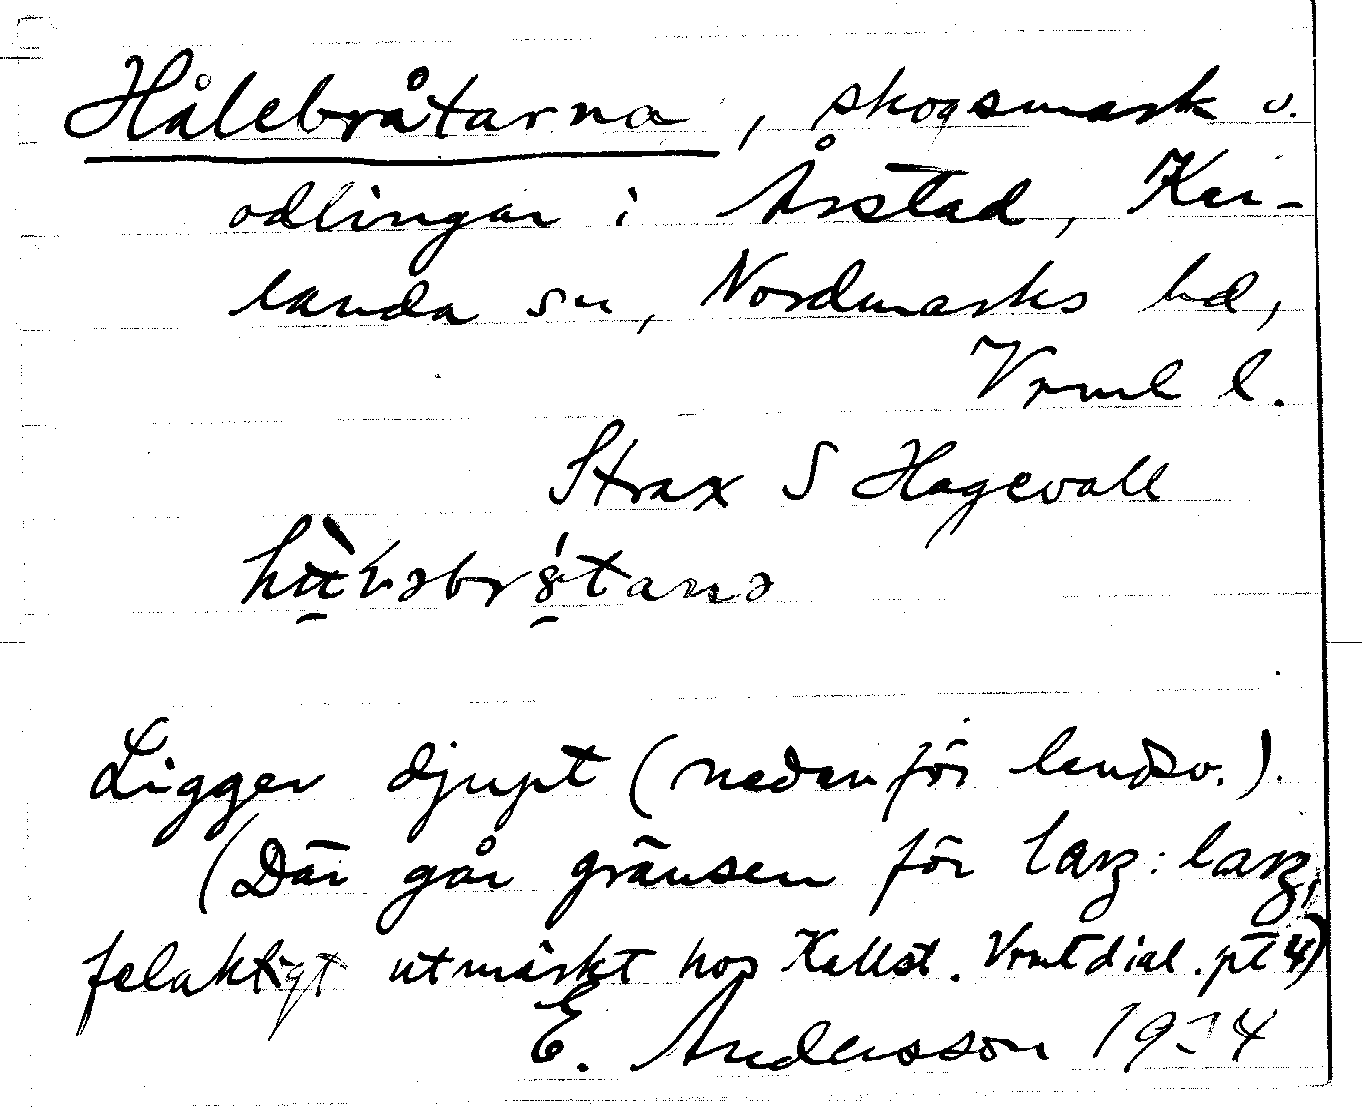 Hålebråtarna, skogsmark o.
odlingar i Årstad, Kar-
landa sn, Nordmarks hd,
Vrml l.
Strax S Hagevall
Ligger djupt (nedanför landsv.).
(Där går gränsen för
felaktigt utmärkt hos Kallst. Vrmldial. pl 4)
E. Andersson 1934